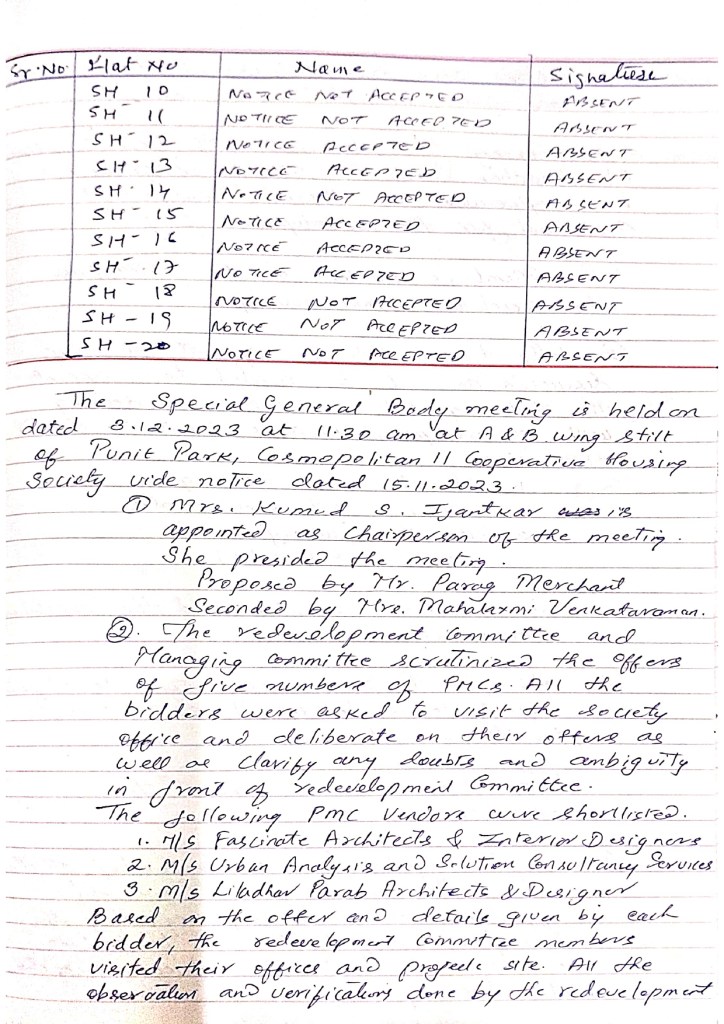 Sr.No. Flat No Name Signature
SH 10 NOTICE NOT ACCEPTED ABSENT
SH - 11 NOTIICE NOT ACCEPTED ABSENT
SH - 12 NOTICE ACCEPTED ABSENT
SH - 13 NOTICE ACCEPTED ABSENT
SH - 14 NOTICE NOT ACCEPTED ABSENT
SH - 15 NOTICE ACCEPTED ABSENT
SH - 16 NOTICE ACCEPTED ABSENT
SH - 17 NOTICE ACCEPTED ABSENT
SH - 18 NOTICE NOT ACCEPTED ABSENT
SH - 19 NOTICE NOT ACCEPTED ABSENT
SH - 20 NOTICE NOT ACCEPTED ABSENT
The Special General Body meeting is held on
dated 3.12.2023 at 11.30 am at A & B wing stilt
of Punit Park, Cosmopolitan II Cooperative Housing
Society vide notice dated 15.11.2023.
① Mrs. Kumud S. Ijantkar was is
appointed as Chairperson of the meeting.
She presided the meeting.
Proposed by Mr. Parag Merchant
Seconded by Mrs. Mahalaxmi Venkataraman.
②. The redevelopment Committee and
Managing committee scrutinized the offers
of five numbers of PMCs. All the
bidders were asked to visit the society
office and deliberate on their offers as
well as clarify any doubts and ambiguity
in front of redevelopment Committee.
The following PMC vendors were shortlisted.
1. M/s Fascinate Architects & Interior Designers
2. M/s Urban Analysis and Solution Consultancy Services
3. M/s Liladhar Parab Architects & Designer
Based on the offer and details given by each
bidder, the redevelopment Committee members
visited their offices and projects site. All the
observations and verifications done by the redevelopment